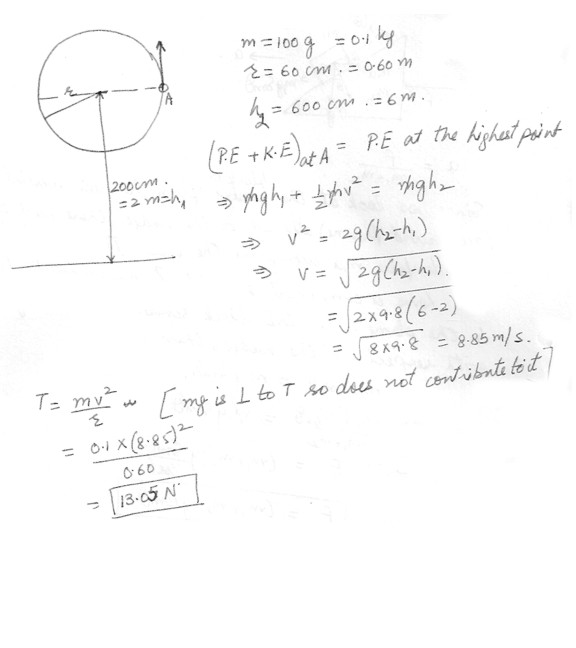 m = 100 g = 0.1 kg
r = 60 cm. = 0.60 m
h₂ = 600 cm. = 6 m.
(P.E + K.E) at A = P.E at the highest point
r
A
200 cm.
= 2 m = h₁
⇒ mgh₁ + ½mv² = mgh₂
⇒ v² = 2g(h₂-h₁)
⇒ v = √2g(h₂-h₁).
= √2×9.8(6-2)
= √8×9.8 = 8.85 m/s.
T = mv²/r [mg is ⊥ to T so does not contribute to it]
= 0.1 × (8.85)²/0.60
= 13.05 N